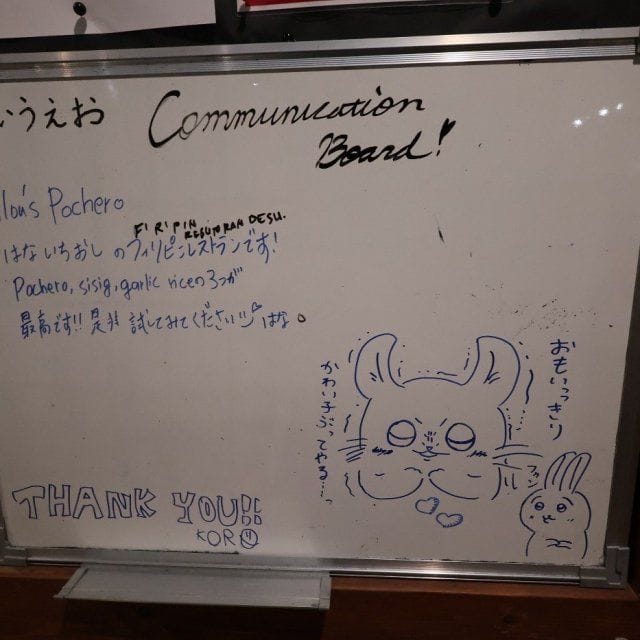 いうえお Communication
Board!
Pochero
FIRIPIN RESUTORAN DESU.
はないちおし のフィリピンレストランです!
Pochero, sisig, garlic riceの3つが
最高です!! 是非 試してみてください はな。
おもいっきり
かわい子ぶってやる…っ
THANK YOU!!
KORO